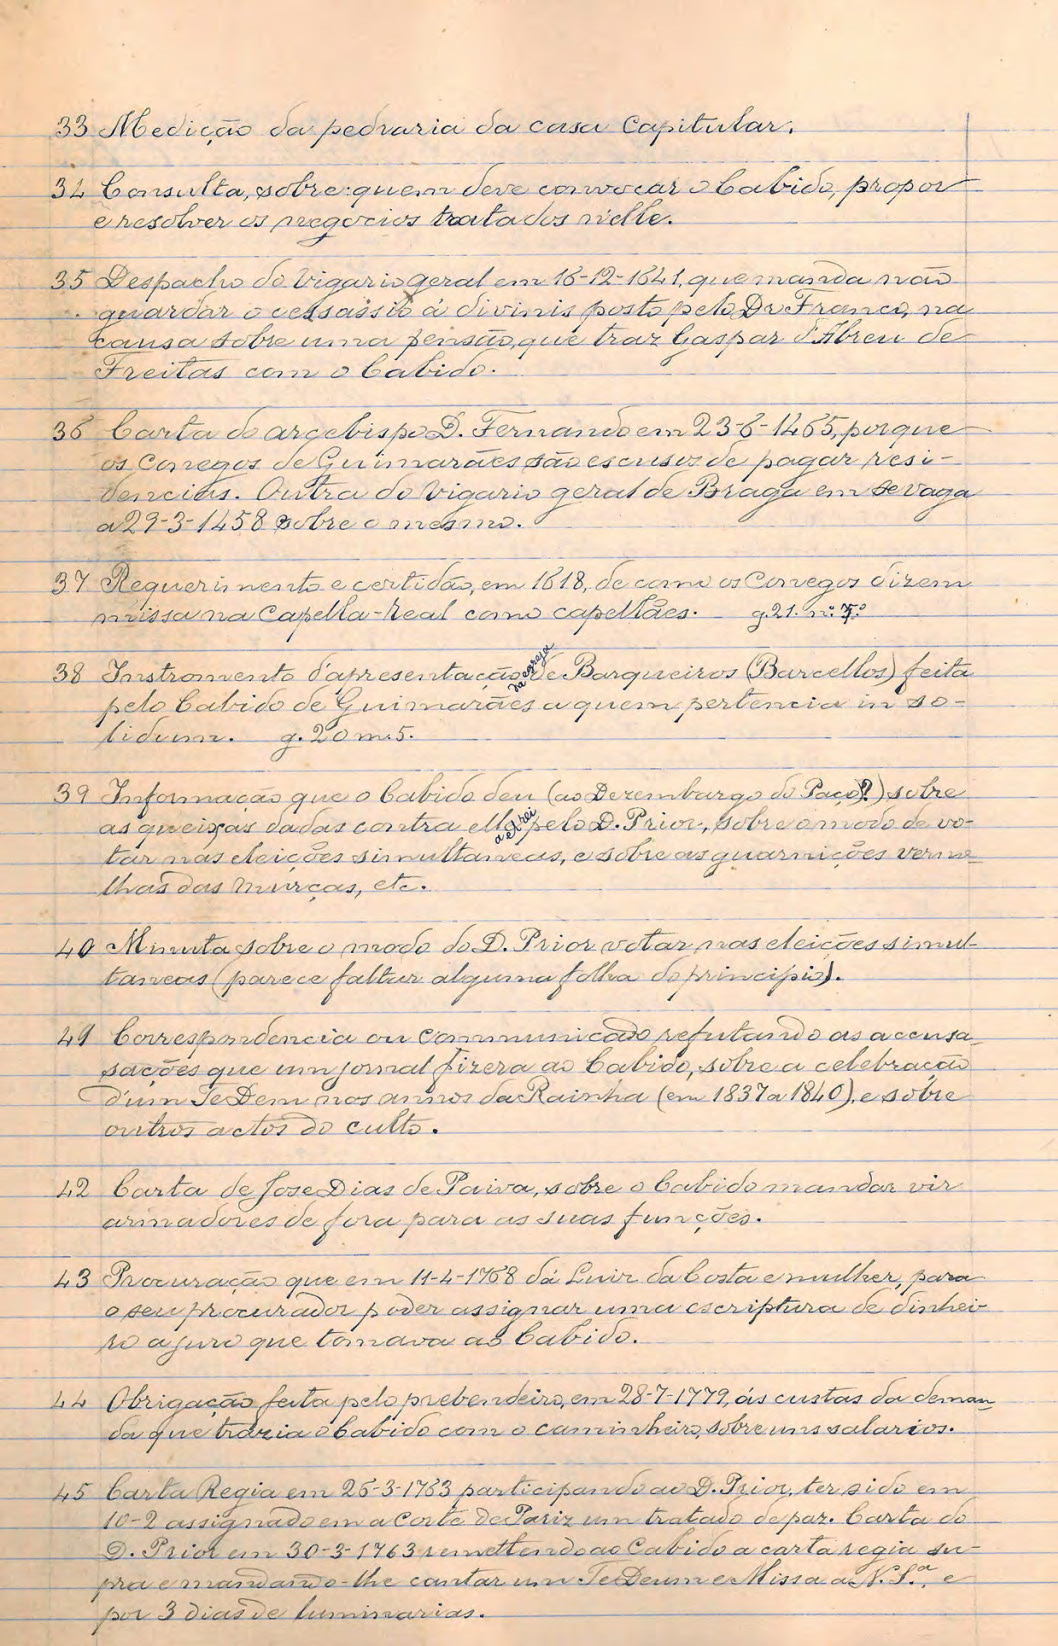 33 Medição da pedraria da casa Capitular.
34 Consulta, sobre: quem deve convocar o Cabido, propor
e resolver os negocios tratados n'elle.
35 Despacho do Vigario geral em 16-12-1641, que manda não
guardar o cessássio á divinis posto pelo Dr Franco, na
causa sobre uma pensão, que traz Gaspar d'Abreu de
Freitas com o Cabido.
36 Carta do arcebispo D. Fernando em 23-6-1465, porque
os Conegos de Guimarães são escusos de pagar resi-
dencias. Outra do Vigario geral de Braga em se vaga
a 29-3-1458 sobre o mesmo.
37 Requerimento e certidão, em 1618, de como os Conegos dizem
missa na Capella-Real como capellães. g. 21. n.º 7.º
38 Instromento d'apresentação da egreja de Barqueiros (Barcellos) feita
pelo Cabido de Guimarães a quem pertencia in so-
lidum. g. 20 m. 5.
39 Informação que o Cabido deu (ao Dezembargo do Paço?) sobre
as queixas dadas contra elle a el-rei pelo D. Prior, sobre o modo de vo-
tar nas eleições simultaneas, e sobre as guarnições verme-
lhas das murças, etc.
40 Minuta sobre o modo do D. Prior votar nas eleições simul-
taneas (parece faltar alguma folha do principio).
41 Correspondencia ou communicado refutando as acusa-
sações que um jornal fizera ao Cabido, sobre a celebração
d'um Te Deum nos annos da Rainha (em 1837 a 1840), e sobre
outros actos do culto.
42 Carta de Jose Dias de Paiva, sobre o Cabido mandar vir
armadores de fora para as suas funções.
43 Procuração que em 11-4-1768 dá Luiz da Costa e mulher, para
o seu procurador poder assignar uma escriptura de dinhei-
ro a juro que tomava ao Cabido.
44 Obrigação feita pelo prebendeiro, em 28-7-1779, ás custas da deman-
da que trazia o Cabido com o caminheiro, sobre uns salarios.
45 Carta Regia em 26-3-1763 participando ao D. Prior, ter sido em
10-2 assignado em a Corte de Pariz um tratado de paz. Carta do
D. Prior em 30-3-1763 remettendo ao Cabido a carta regia su-
pra e mandando-lhe cantar um Te Deum e Missa a N. S.ª, e
por 3 dias de luminarias.